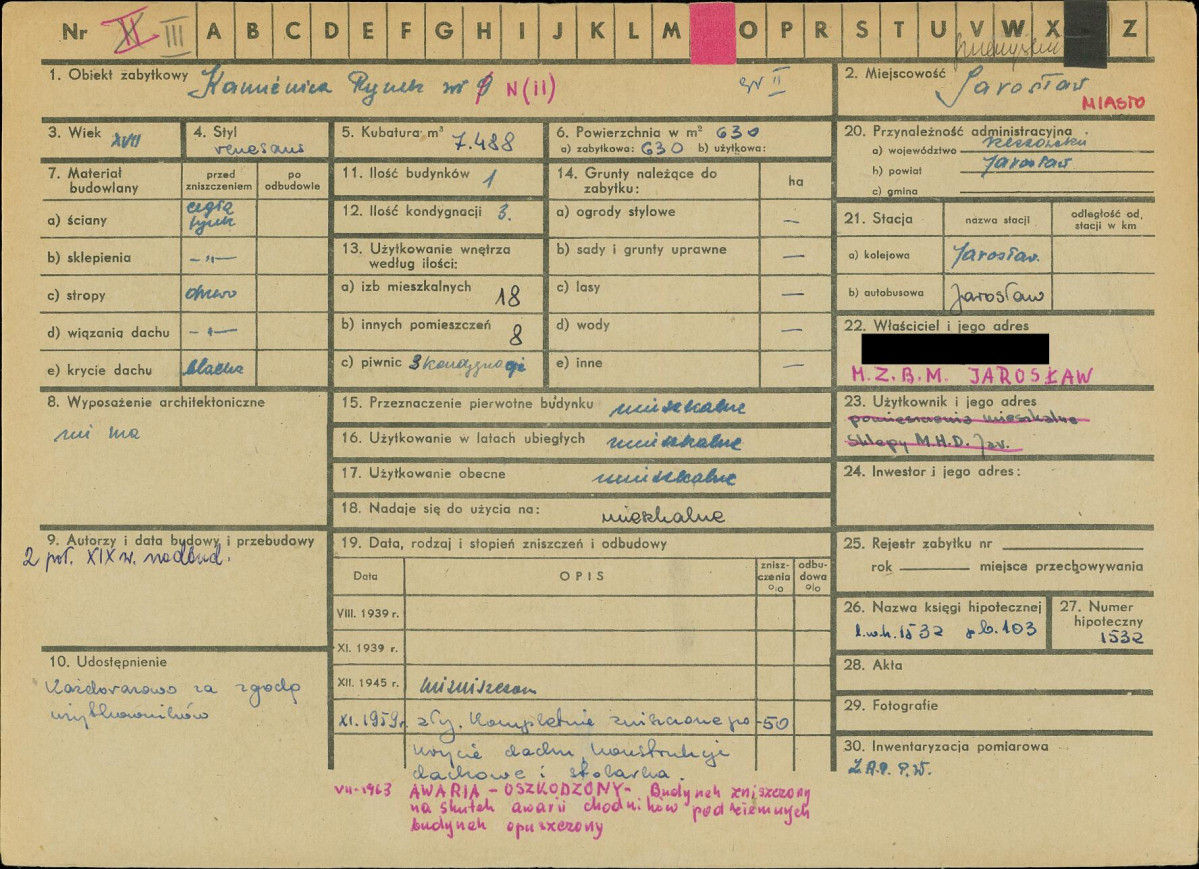 Nr II III A B C D E F G H I J K L M O P R S T U V W X Z
1. Obiekt zabytkowy Kamienica Rynek nr 9 N(11) gr II
2. Miejscowość Jarosław
MIASTO
3. Wiek XVII
4. Styl renesans
5. Kubatura m³ 7.488
6. Powierzchnia w m² 630
a) zabytkowa: 630 b) użytkowa:
7. Materiał budowlany
przed zniszczeniem
po odbudowie
a) ściany cegła tynk
b) sklepienia —"—
c) stropy drewo
d) wiązania dachu —"—
e) krycie dachu blacha
8. Wyposażenie architektoniczne
nie ma
9. Autorzy i data budowy i przebudowy
2 poł. XIX w. nadbud.
10. Udostępnienie
Każdorazowo za zgodą
użytkowników
11. Ilość budynków 1
12. Ilość kondygnacji 3.
13. Użytkowanie wnętrza
według ilości:
a) izb mieszkalnych 18
b) innych pomieszczeń 8
c) piwnic 3 kondygnacje
14. Grunty należące do
zabytku:
ha
a) ogrody stylowe —
b) sady i grunty uprawne —
c) lasy —
d) wody —
e) inne —
15. Przeznaczenie pierwotne budynku mieszkalne
16. Użytkowanie w latach ubiegłych mieszkalne
17. Użytkowanie obecne mieszkalne
18. Nadaje się do użycia na: mieszkalne
19. Data, rodzaj i stopień zniszczeń i odbudowy
Data OPIS zniszczenia % odbudowa %
VIII. 1939 r.
XI. 1939 r.
XII. 1945 r.
XI. 1959 r. zły. Kompletnie zniszczone po- 50
krycie dachu, konstrukcje
dachowe i stolarka.
VII-1963 AWARIA – USZKODZONY – Budynek zniszczony
na skutek awarii chodników podziemnych
budynek opuszczony
20. Przynależność administracyjna
a) województwo rzeszowskie
b) powiat Jarosław
c) gmina
21. Stacja nazwa stacji odległość od stacji w km
a) kolejowa Jarosław.
b) autobusowa Jarosław
22. Właściciel i jego adres
M.Z.B.M. JAROSŁAW
23. Użytkownik i jego adres
pomieszczenia mieszkalne
Sklepy M.H.D. Jar.
24. Inwestor i jego adres:
25. Rejestr zabytku nr
rok miejsce przechowywania
26. Nazwa księgi hipotecznej
l.w.h. 1532 p b. 103
27. Numer
hipoteczny
1532
28. Akta
29. Fotografie
30. Inwentaryzacja pomiarowa
Z.A.P. P.W.